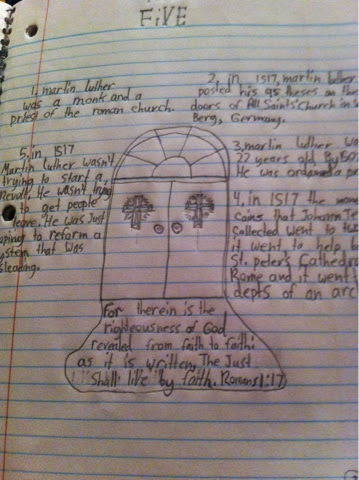 FiVE
1. martin luther
was a monk and a
priest of the roman church.
2, in 1517, martin luther
posted his 95 theses on the
doors of All Saints' Church in
Berg, Germany.
3, martin luther wa
22 years old,
He was ordained a pr
4, in 1517 the mone
coins that Johann T
collected went to tw
it went to help
St. peter's Cathedr
Rome and it went
depts of an arc
5, in 1517
Martin Luther wasn't
trying to start a
He wasn't trying
to get people
leave. He was Just
oping to reform a
ystem that was
sleading.
For therein is the
righteousness of God
revealed from faith to faith:
as it is written, The Just
Shall live by faith. Romans 1:17